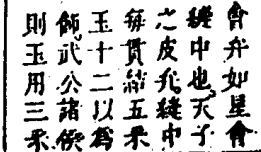 會弁如星會
縫中也天子
之皮弁縫中
每貫結五采
玉十二以爲
飾武公諸侯
則玉用三采